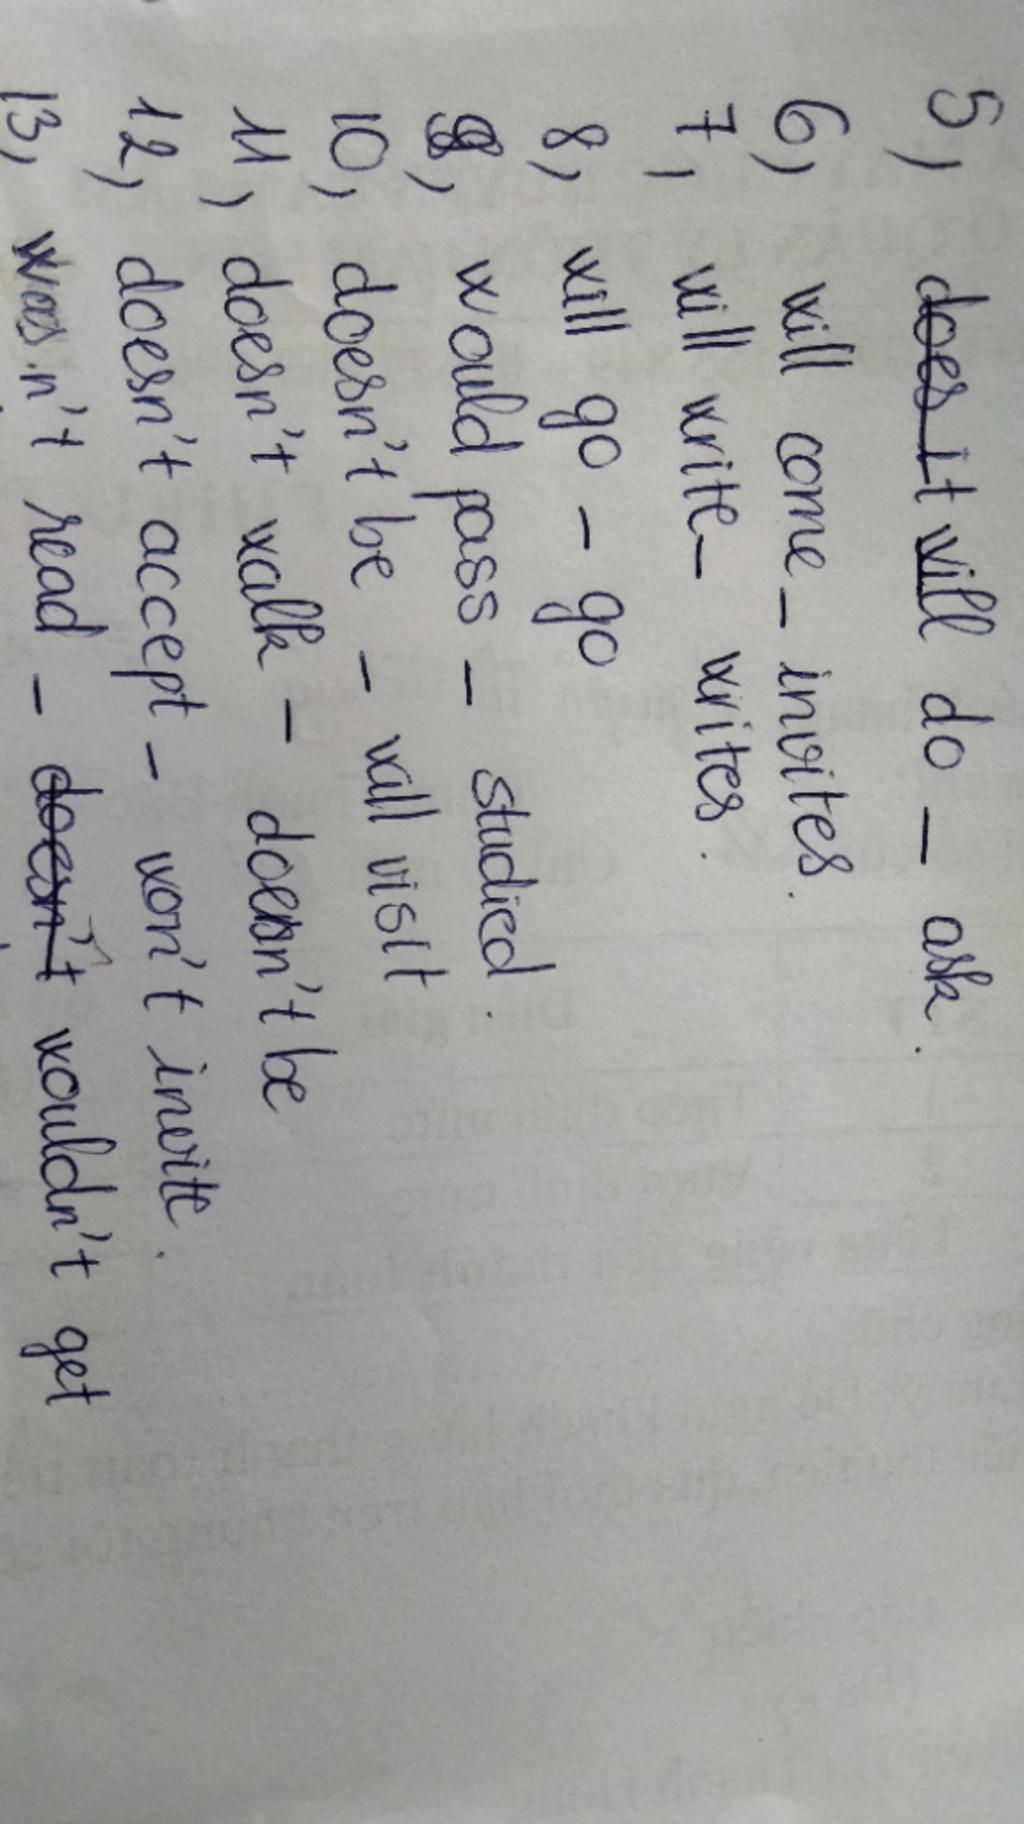 5, does it will do - ask.
6, will come - invites.
7, will write - writes.
8, will go - go
9, would pass - studied.
10, doesn't be - will visit
11, doesn't walk - doesn't be
12, doesn't accept - won't invite.
13, wasn't read - doesn't wouldn't get